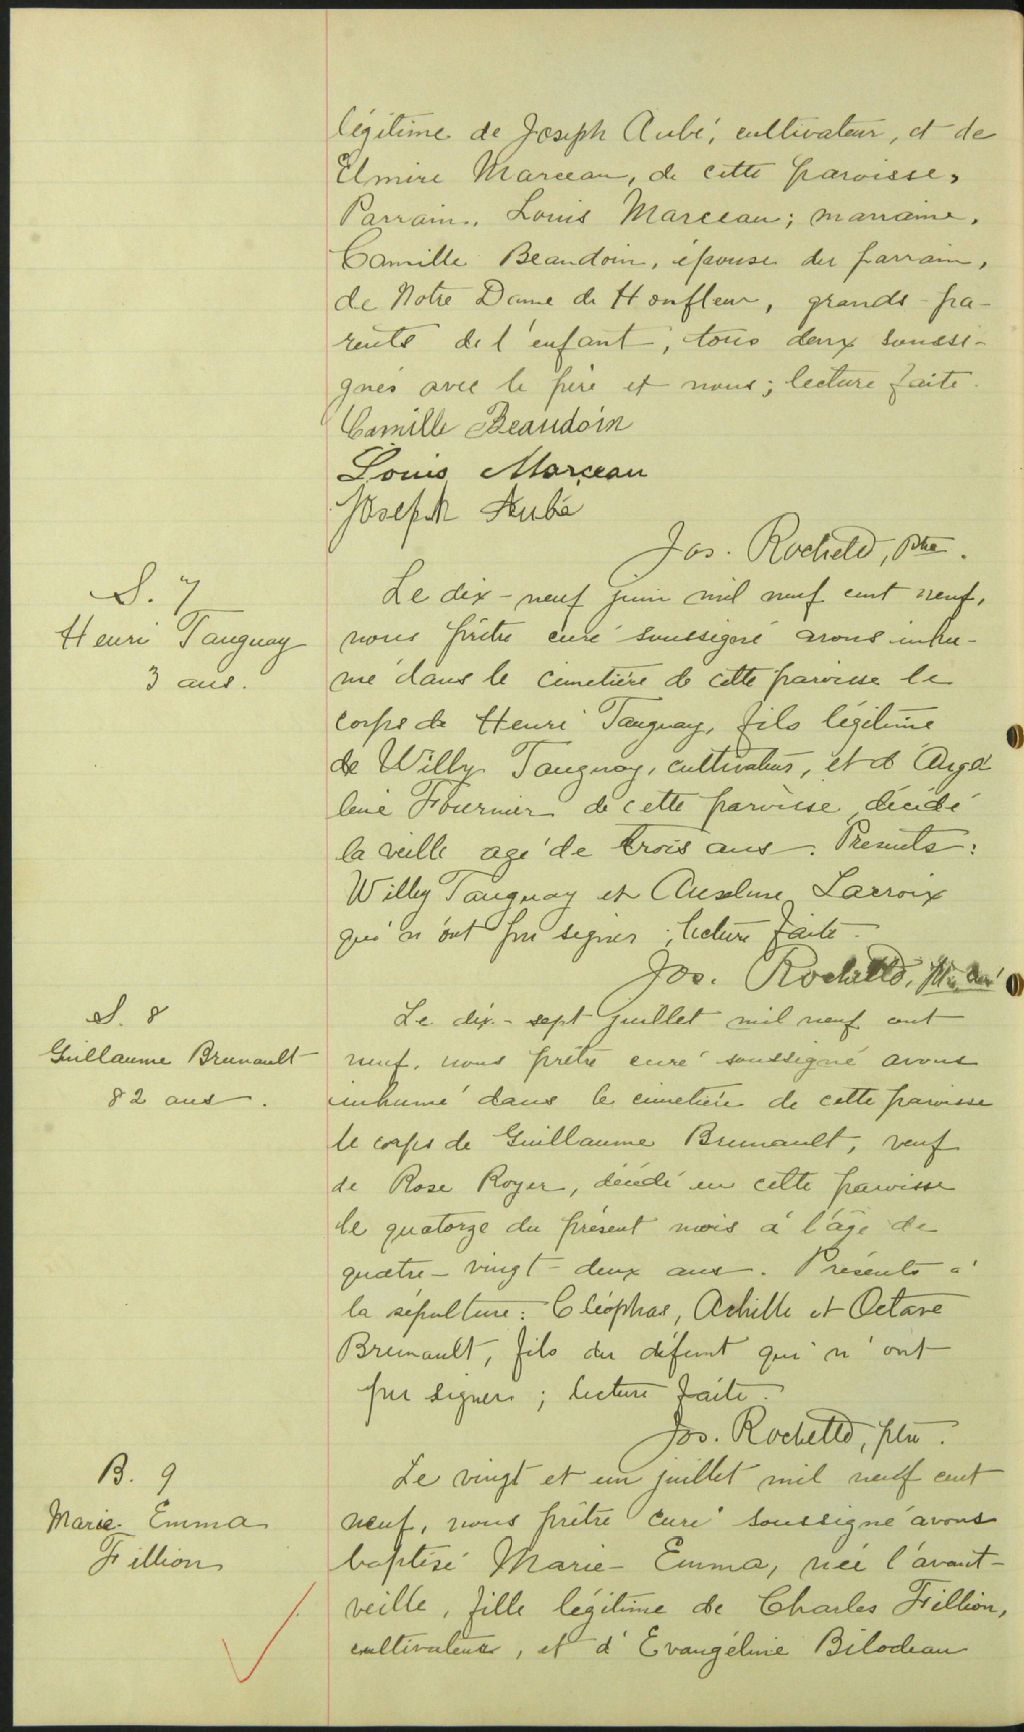 légitime de Joseph Aubé, cultivateur, et de
Elmire Marceau, de cette paroisse,
Parrain, Louis Marceau; marraine,
Camille Beaudoin, épouse du parrain,
de Notre Dame de Honfleur, grands-pa-
rents de l'enfant, tous deux soussi-
gnés avec le père et nous; lecture faite.
Camille Beaudoin
Louis Marceau
Joseph Aubé
Jos. Rochette, ptre.
S. 7
Henri Tanguay
3 ans.
Le dix-neuf juin mil neuf cent neuf,
nous prêtre curé soussigné avons inhu-
mé dans le cimetière de cette paroisse le
corps de Henri Tanguay, fils légitime
de Willy Tanguay, cultivateur, et d'Angé
lina Fournier de cette paroisse, décédé
la veille agé de trois ans. Présents:
Willy Tanguay et Anselme Lacroix
qui n'ont pu signer; lecture faite.
Jos. Rochette, ptre, curé
S. 8
Guillaume Brunault
82 ans.
Le dix-sept juillet mil neuf cent
neuf, nous prêtre curé soussigné avons
inhumé dans le cimetière de cette paroisse
le corps de Guillaume Brunault, veuf
de Rose Royer, décédé en cette paroisse
le quatorze du présent mois à l'âge de
quatre-vingt-deux ans. Présents à
la sépulture: Cléophas, Achille et Octave
Brunault, fils du défunt qui n'ont
pu signer; lecture faite.
Jos. Rochette, ptre.
B. 9
Marie-Emma
Fillion
Le vingt et un juillet mil neuf cent
neuf, nous prêtre curé soussigné avons
baptisé Marie-Emma, née l'avant-
veille, fille légitime de Charles Fillion,
cultivateur, et d'Evangéline Bilodeau